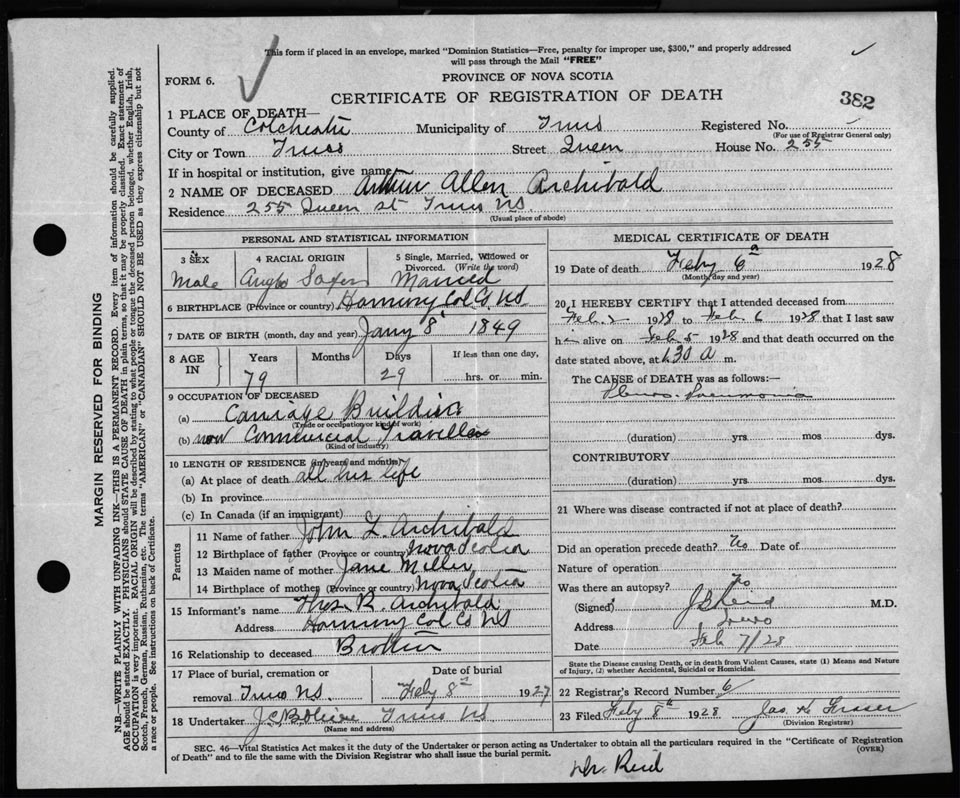 This form if placed in an envelope, marked "Dominion Statistics—Free, penalty for improper use, $300," and properly addressed
will pass through the Mail "FREE"
FORM 6.
PROVINCE OF NOVA SCOTIA
CERTIFICATE OF REGISTRATION OF DEATH
382
1 PLACE OF DEATH—
County of Colchester Municipality of Truro Registered No.
(For use of Registrar General only)
City or Town Truro Street Queen House No. 255
If in hospital or institution, give name
2 NAME OF DECEASED Arthur Allen Archibald
Residence 255 Queen st Truro NS.
(Usual place of abode)
PERSONAL AND STATISTICAL INFORMATION
3 SEX 4 RACIAL ORIGIN 5 Single, Married, Widowed or Divorced. (Write the word)
Male Anglo Saxon Married
6 BIRTHPLACE (Province or country) Harmony Col Co NS
7 DATE OF BIRTH (month, day and year) Jany 8 1849
8 AGE IN Years Months Days If less than one day,
79 29 hrs. or min.
9 OCCUPATION OF DECEASED
(a) Carriage Building
(Trade or occupation or kind of work)
(b) now Commercial Traveller
(Kind of industry)
10 LENGTH OF RESIDENCE (in years and months)
(a) At place of death all his life
(b) In province
(c) In Canada (if an immigrant)
Parents
11 Name of father John L. Archibald
12 Birthplace of father (Province or country) Nova Scotia
13 Maiden name of mother Jane Miller
14 Birthplace of mother (Province or country) Nova Scotia
15 Informant's name Thos R. Archibald
Address Harmony Col Co NS
16 Relationship to deceased Brother
17 Place of burial, cremation or Date of burial
removal Truro NS. Feby 8th 1927
18 Undertaker Truro NS
(Name and address)
MEDICAL CERTIFICATE OF DEATH
19 Date of death Feby 6th 1928
(Month, day and year)
20 I HEREBY CERTIFY that I attended deceased from
Feb 2 1928 to Feb 6 1928 that I last saw
h alive on Feb 5 1928 and that death occurred on the
date stated above, at 1.30 A m.
The CAUSE of DEATH was as follows:—
Pleuro-Pneumonia
(duration) yrs. mos dys.
CONTRIBUTORY
(duration) yrs. mos. dys.
21 Where was disease contracted if not at place of death?
Did an operation precede death? No Date of
Nature of operation
Was there an autopsy? No
(Signed) J B Reid M.D.
Address Truro
Date Feb 7/28
State the Disease causing Death, or in death from Violent Causes, state (1) Means and Nature
of Injury, (2) whether Accidental, Suicidal or Homicidal.
22 Registrar's Record Number 6
23 Filed Feby 8th 1928 Jas. K Fraser
(Division Registrar)
SEC. 46—Vital Statistics Act makes it the duty of the Undertaker or person acting as Undertaker to obtain all the particulars required in the "Certificate of Registration
of Death" and to file the same with the Division Registrar who shall issue the burial permit. (OVER)
Dr. Reid
MARGIN RESERVED FOR BINDING
N.B.—WRITE PLAINLY WITH UNFADING INK—THIS IS A PERMANENT RECORD. Every item of information should be carefully supplied.
AGE should be stated EXACTLY. PHYSICIANS should STATE CAUSE OF DEATH in plain terms, so that it may be properly classified. Exact statement of
OCCUPATION is very important. RACIAL ORIGIN will be described by stating to what people or tongue the deceased person belonged, whether English, Irish,
Scotch, French, German, Russian, Ruthenian, etc. The terms "AMERICAN" or "CANADIAN" SHOULD NOT BE USED as they express citizenship but not
a race or people. See instructions on back of Certificate.